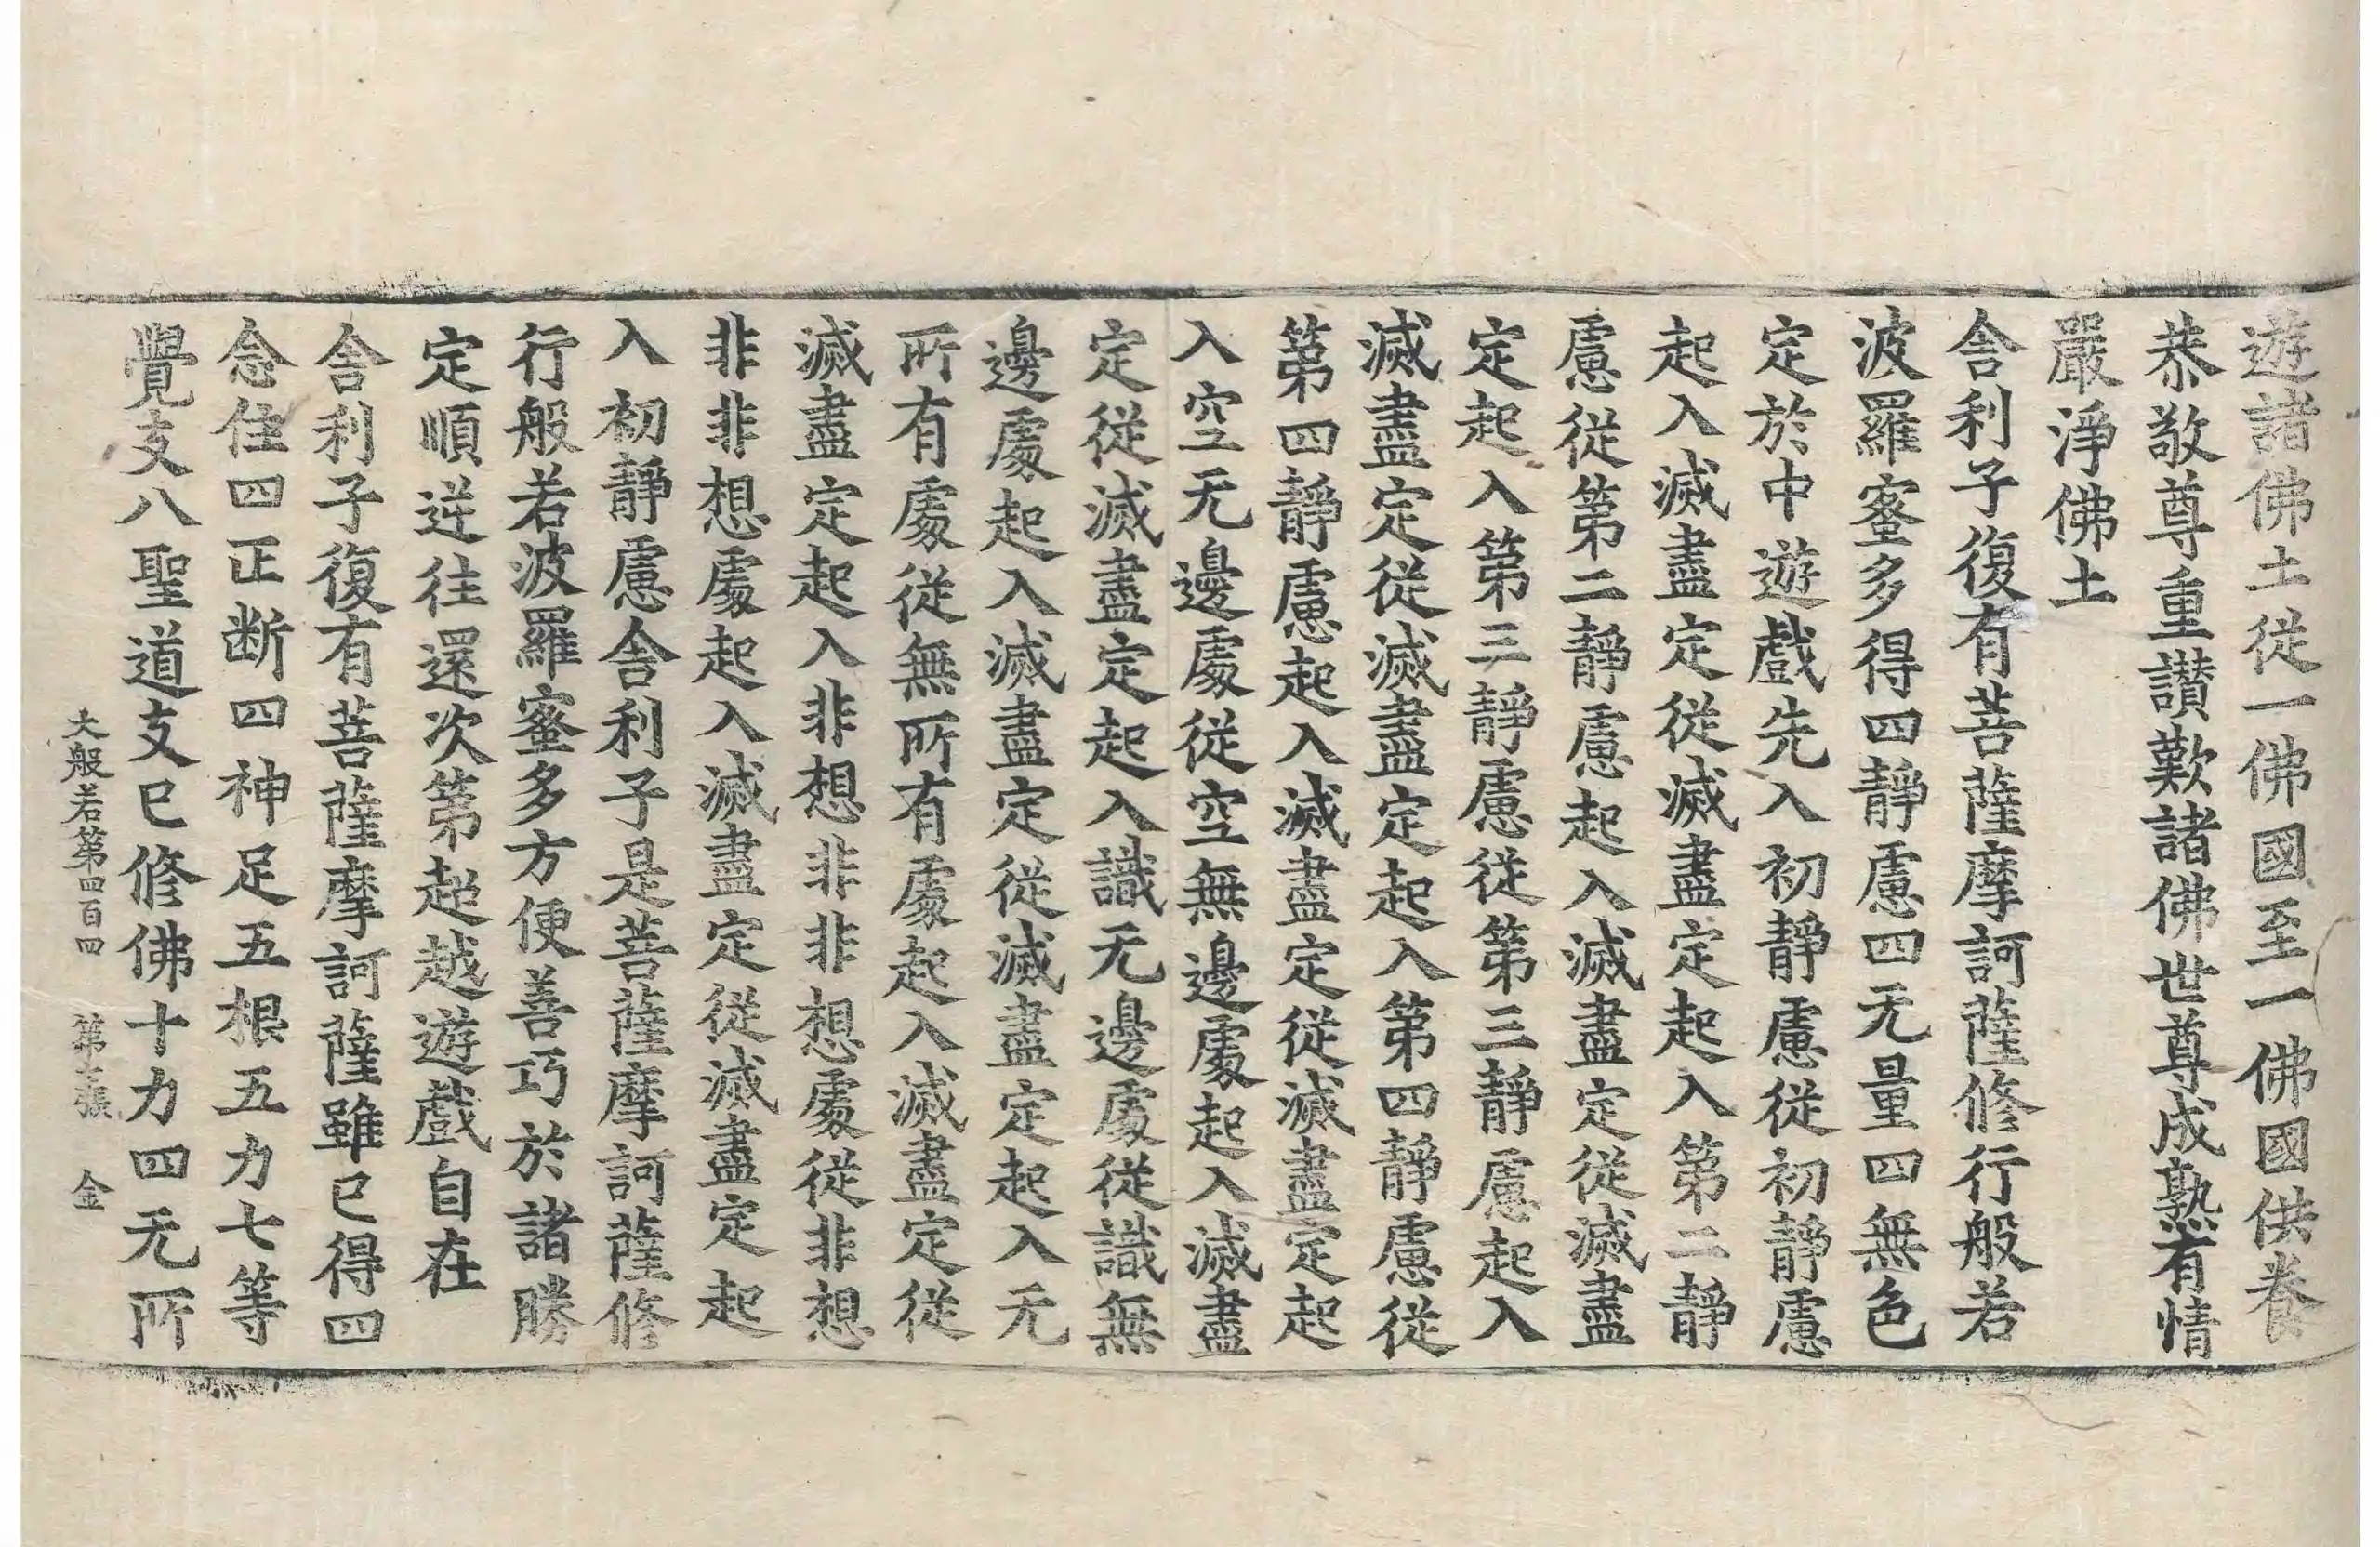 遊諸佛土從一佛國至一佛國供養
恭敬尊重讃歎諸佛世尊成熟有情
嚴淨佛土
舎利子復有菩薩摩訶薩修行般若
波羅蜜多得四靜慮四无量四無色
定於中遊戲先入初靜慮從初靜慮
起入滅盡定從滅盡定起入第二靜
慮從第二靜慮起入滅盡定從滅盡
定起入第三靜慮從第三靜慮起入
滅盡定從滅盡定起入第四靜慮從
第四靜慮起入滅盡定從滅盡定起
入空无邊處從空無邊處起入滅盡
定從滅盡定起入識无邊處從識無
邊處起入滅盡定從滅盡定起入无
所有處從無所有處起入滅盡定從
滅盡定起入非想非非想處從非想
非非想處起入滅盡定從滅盡定起
入初靜慮舎利子是菩薩摩訶薩修
行般若波羅蜜多方便善巧於諸勝
定順逆往還次第超越遊戲自在
舎利子復有菩薩摩訶薩雖已得四
念住四正断四神足五根五力七等
覺支八聖道支已修佛十力四无所
大般若第四百四 第七張 金